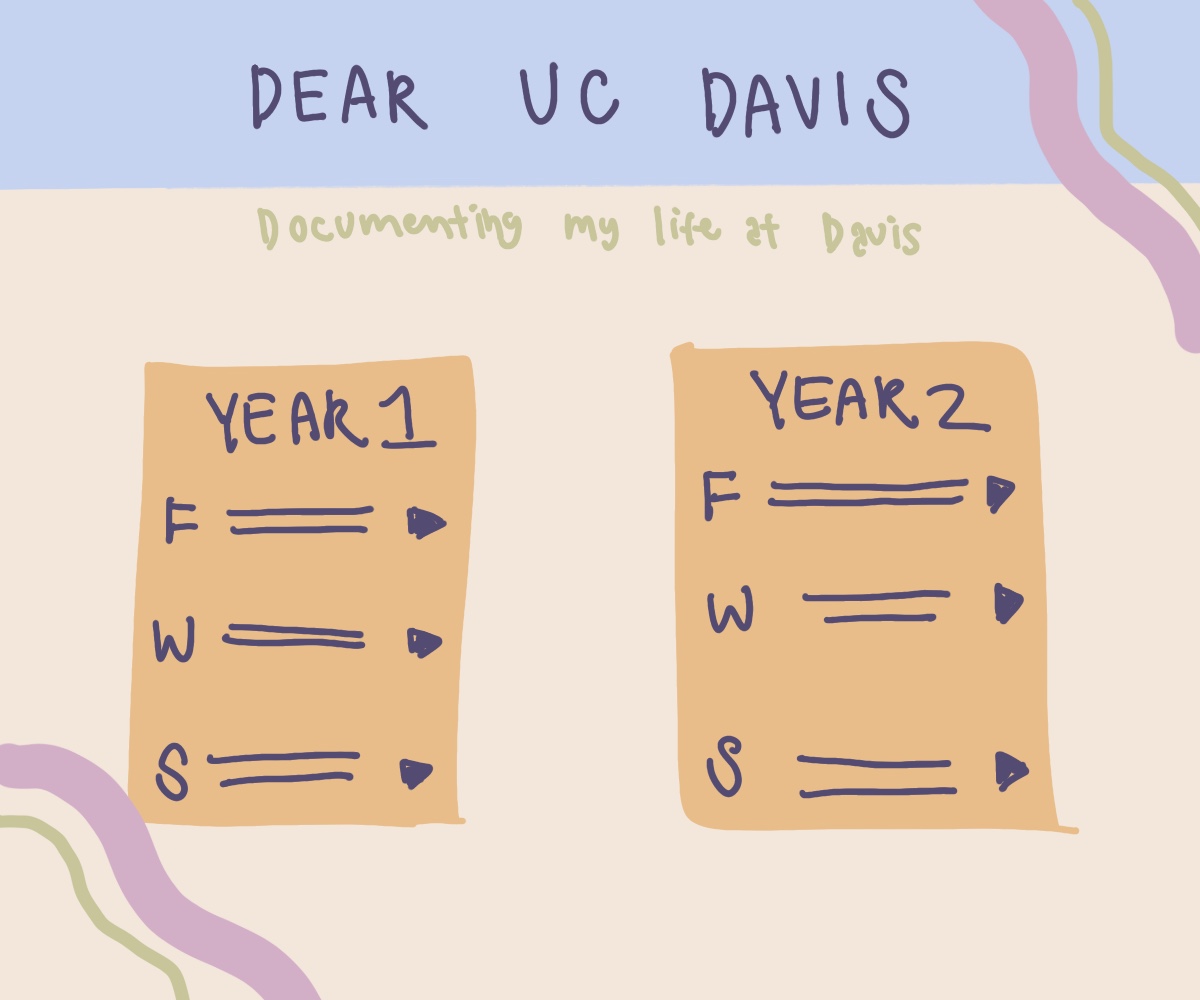 DEAR UC DAVIS
Documenting my life at Davis
YEAR 1
F
W
S
YEAR 2
F
W
S